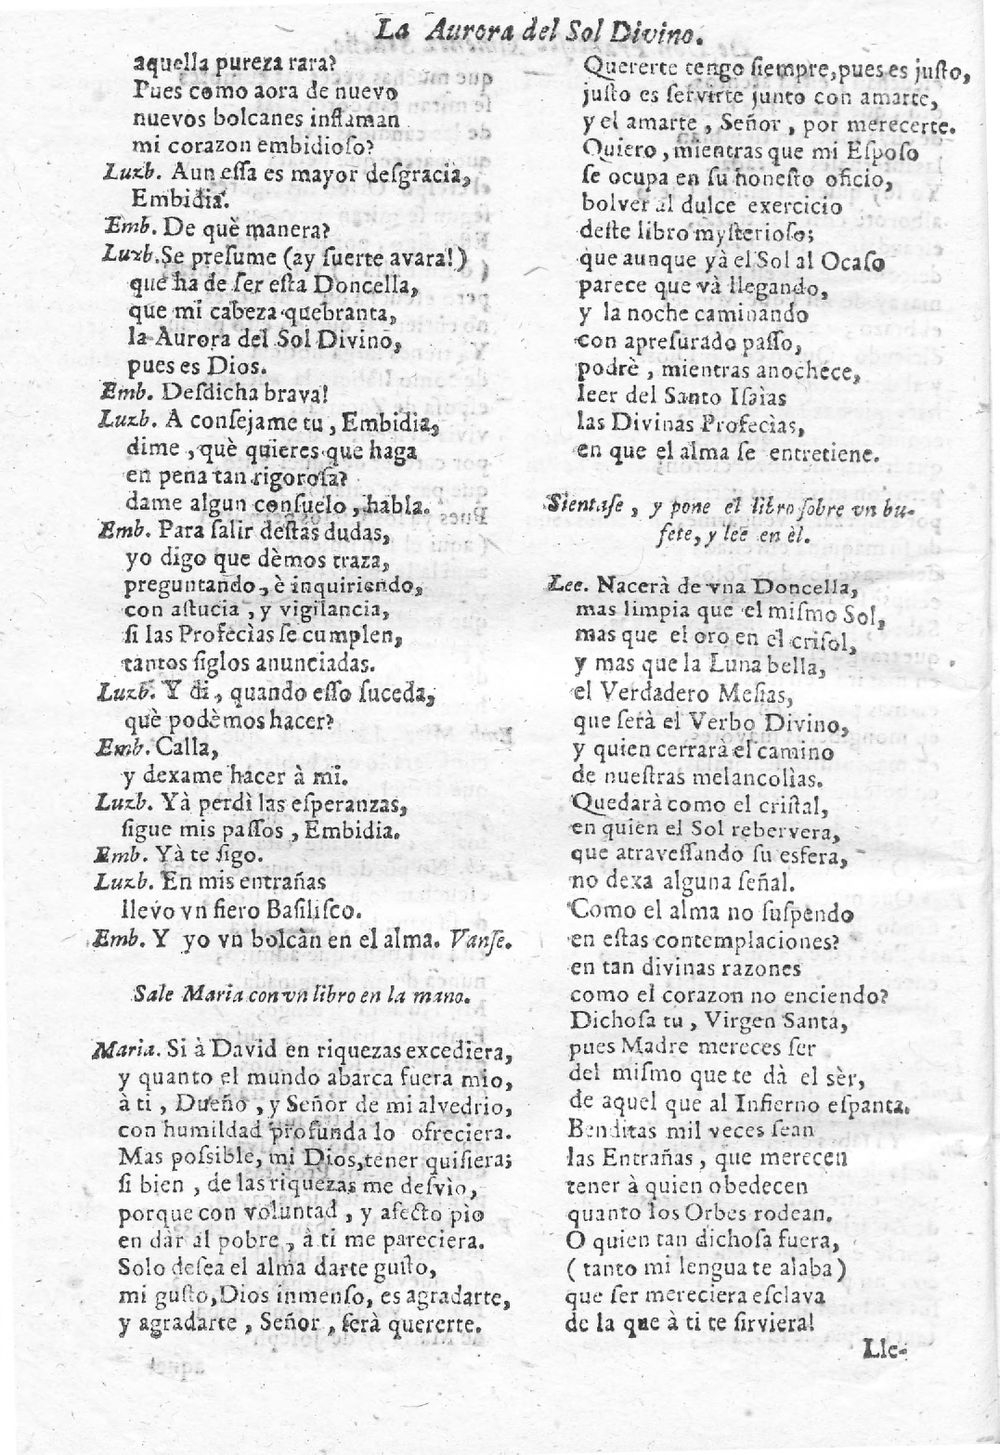 La Aurora del Sol Divino.
aquella pureza rara?
Pues como aora de nuevo
nuevos bolcanes inflaman
mi corazon embidioſo?
Luzb. Aun eſſa es mayor deſgracia,
Embidia.
Emb. De què manera?
Luzb. Se preſume (ay ſuerte avara!)
que ha de ſer eſta Doncella,
que mi cabeza quebranta,
la Aurora del Sol Divino,
pues es Dios.
Emb. Deſdicha brava!
Luzb. A conſejame tu, Embidia,
dime, què quieres que haga
en pena tan rigoroſa?
dame algun conſuelo, habla.
Emb. Para ſalir deſtas dudas,
yo digo que dèmos traza,
preguntando, è inquiriendo,
con aſtucia, y vigilancia,
ſi las Profecìas ſe cumplen,
tantos ſiglos anunciadas.
Luzb. Y di, quando eſſo ſuceda,
què podèmos hacer?
Emb. Calla,
y dexame hacer à mi.
Luzb. Yà perdì las eſperanzas,
ſigue mis paſſos, Embidia.
Emb. Yà te ſigo.
Luzb. En mis entrañas
llevo vn fiero Baſiliſco.
Emb. Y yo vn bolcàn en el alma. Vanſe.
Sale Maria con vn libro en la mano.
Maria. Si à David en riquezas excediera,
y quanto el mundo abarca fuera mio,
à ti, Dueño, y Señor de mi alvedrio,
con humildad profunda lo ofreciera.
Mas poſsible, mi Dios, tener quiſiera;
ſi bien, de las riquezas me deſvìo,
porque con voluntad, y afecto pìo
en dàr al pobre, à ti me pareciera.
Solo deſea el alma darte guſto,
mi guſto, Dios inmenſo, es agradarte,
y agradarte, Señor, ſerà quererte.
Quererte tengo ſiempre, pues es juſto,
juſto es ſervirte junto con amarte,
y el amarte, Señor, por merecerte.
Quiero, mientras que mi Eſpoſo
ſe ocupa en ſu honeſto oficio,
bolver al dulce exercicio
deſte libro myſterioſo;
que aunque yà el Sol al Ocaſo
parece que và llegando,
y la noche caminando
con apreſurado paſſo,
podrè, mientras anochece,
leer del Santo Iſaìas
las Divinas Profecìas,
en que el alma ſe entretiene.
Sientaſe, y pone el libro ſobre vn bu-
fete, y lee en èl.
Lee. Nacerà de vna Doncella,
mas limpia que el miſmo Sol,
mas que el oro en el criſol,
y mas que la Luna bella,
el Verdadero Meſias,
que ſerà el Verbo Divino,
y quien cerrarà el camino
de nueſtras melancolìas.
Quedarà como el criſtal,
en quien el Sol rebervera,
que atraveſſando ſu esfera,
no dexa alguna ſeñal.
Como el alma no ſuſpendo
en eſtas contemplaciones?
en tan divinas razones
como el corazon no enciendo?
Dichoſa tu, Virgen Santa,
pues Madre mereces ſer
del miſmo que te dà el sèr,
de aquel que al Infierno eſpanta.
Benditas mil veces ſean
las Entrañas, que merecen
tener à quien obedecen
quanto los Orbes rodean.
O quien tan dichoſa fuera,
(tanto mi lengua te alaba)
que ſer mereciera eſclava
de la que à ti te ſirviera!
Lle-